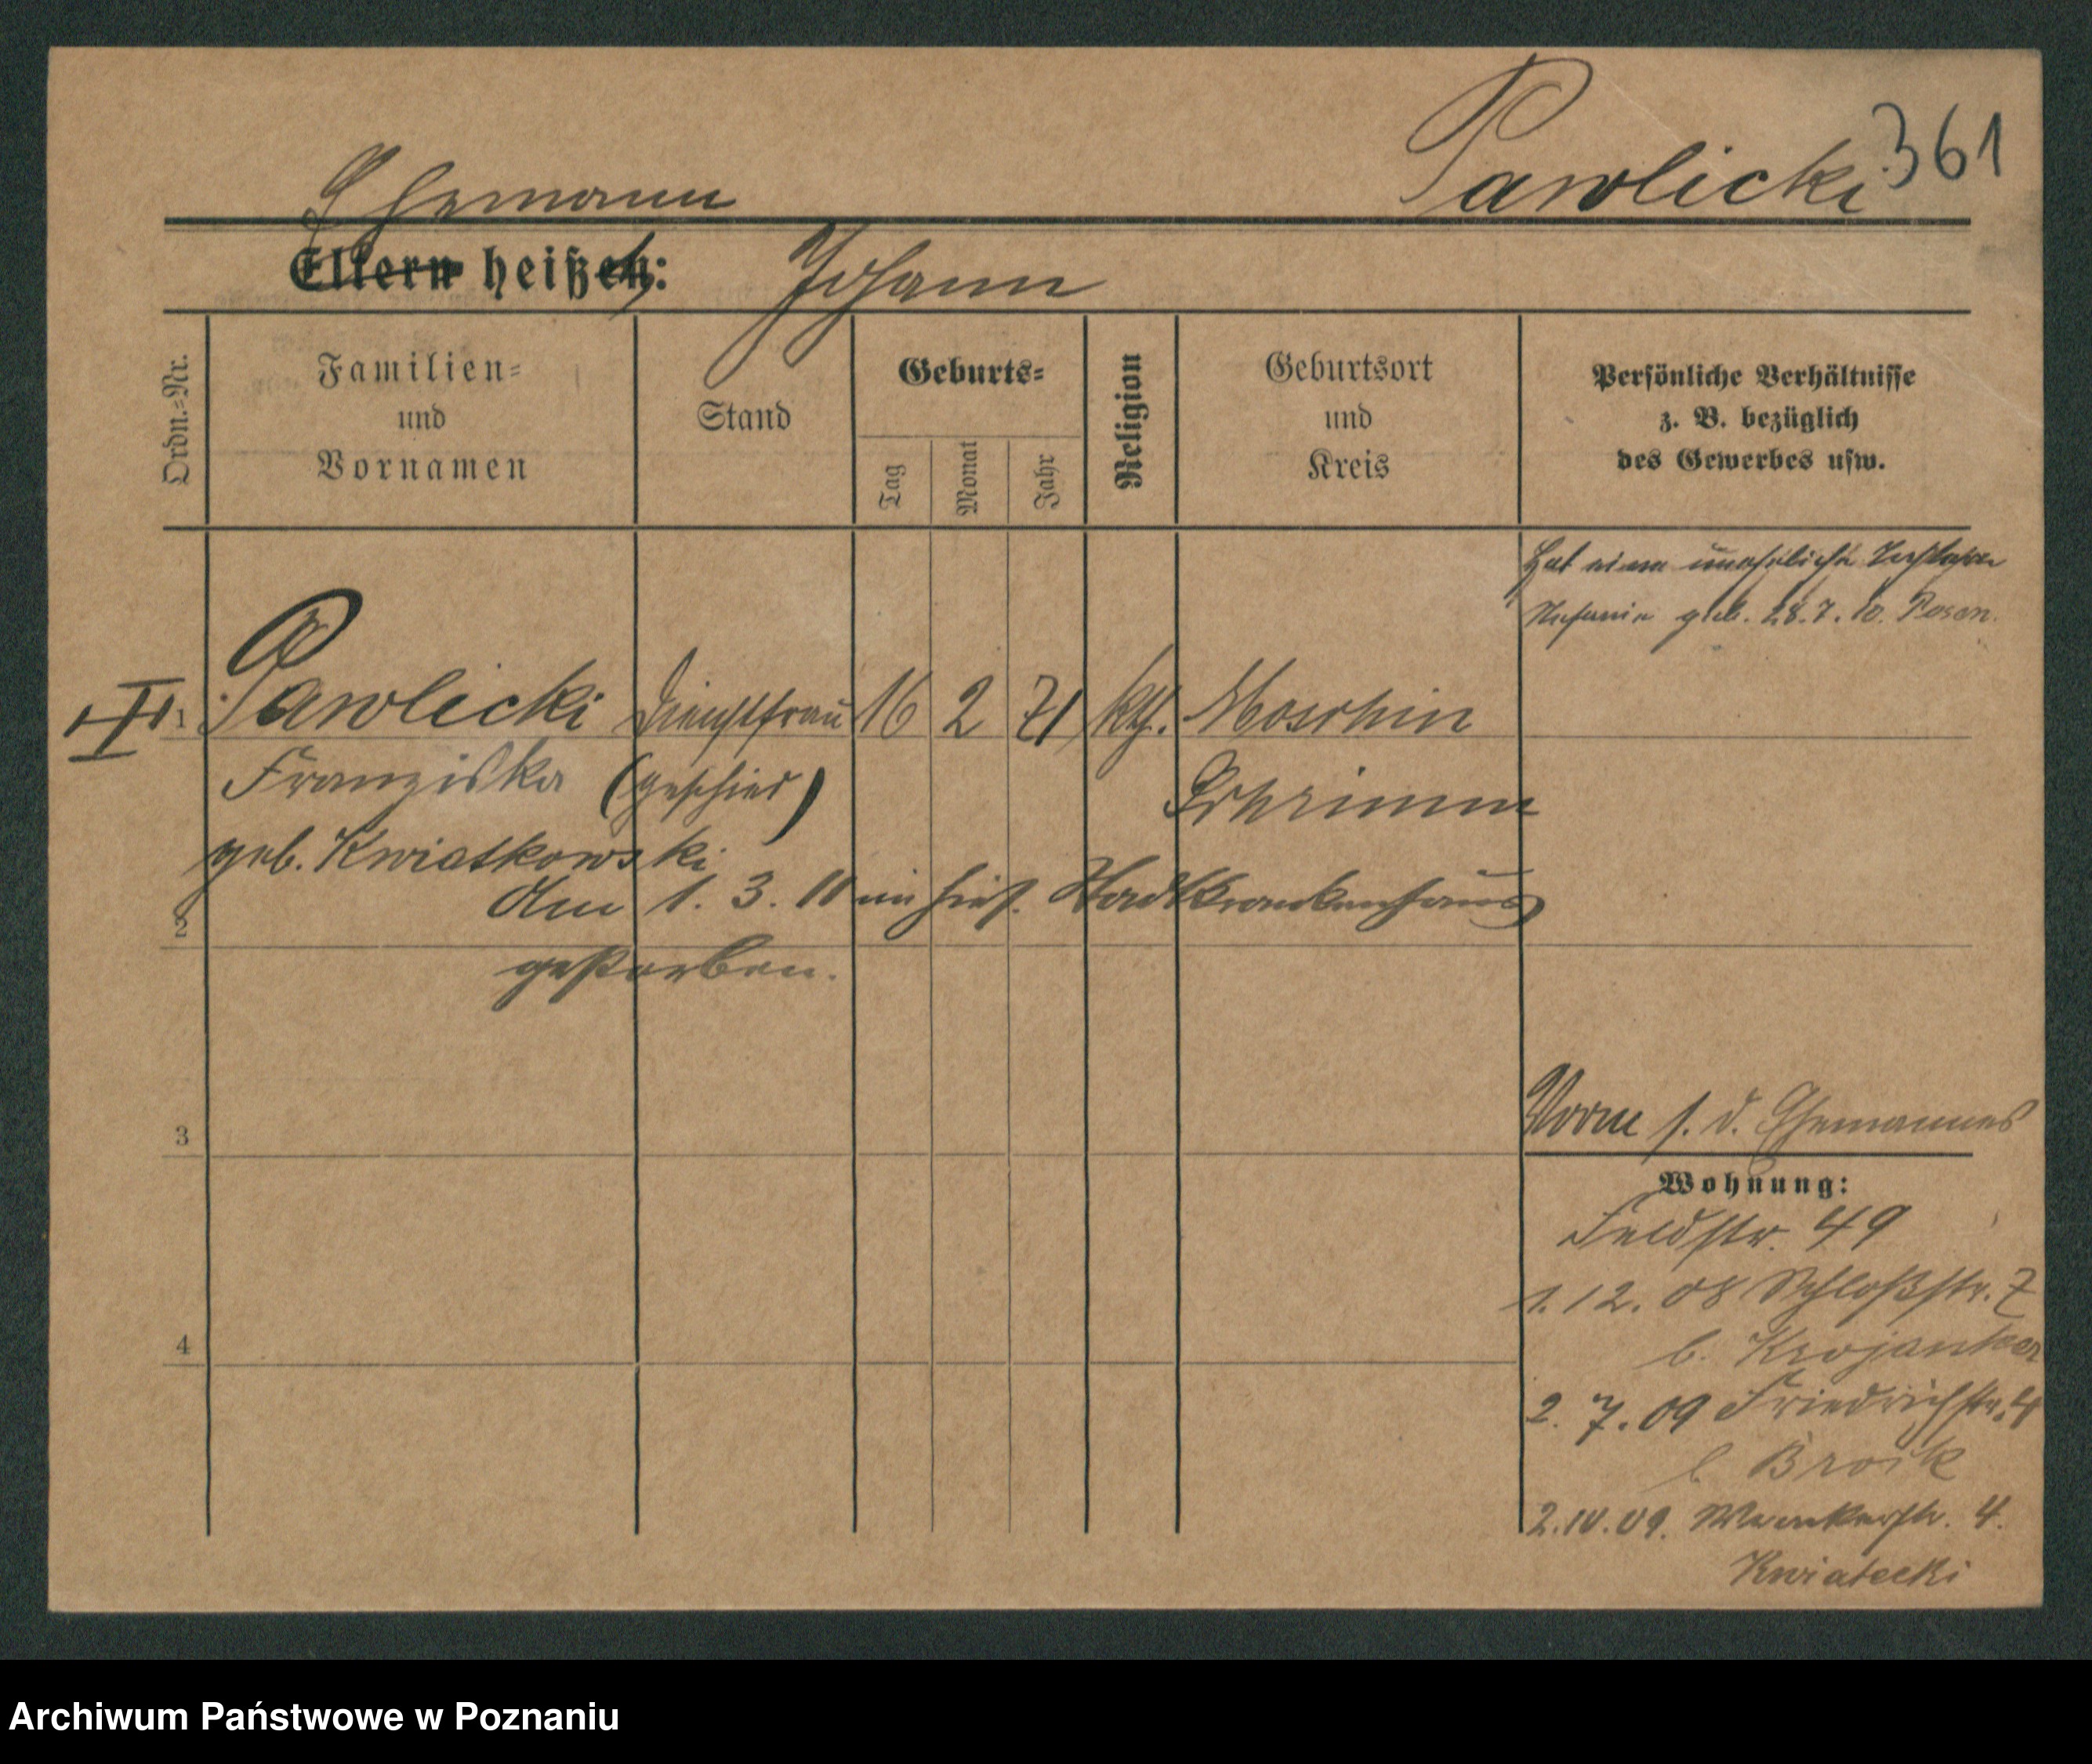 Pawlicki 361
Ehemann
Eltern heißen: Johann
Ordn.-Nr.
Familien-
und
Vornamen
Stand
Geburts-
Tag
Monat
Jahr
Religion
Geburtsort
und
Kreis
Persönliche Verhältnisse
z. B. bezüglich
des Gewerbes usw.
Hat eine uneheliche
geb. 28.7.10. Posen.
III 1 Pawlicki Dienstfrau 16 2 71 kth. Moschin
Franziska (geschied) Schrimm
geb. Kwiatkowski
Am 1. 3. 11 im hies. Stadtkrankenhaus
2
gestorben.
3
s. d. Ehemannes
Wohnung:
Feldstr. 49
1. 12. 08 Schloßstr. 7
b. Krojanker
2. 7. 09 Friedrichstr. 4
b Broik
2.10.09. 4.
Kwiatecki
4
Archiwum Państwowe w Poznaniu